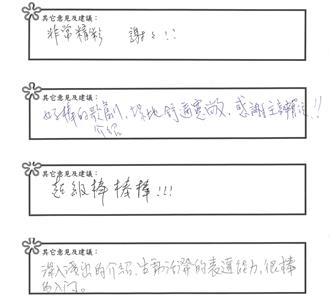 其它意見及建議：
非常精彩 謝謝!!
其它意見及建議：
好棒的歌劇，場地舒適寬敞，感謝主辦!!
介紹
其它意見及建議：
超級棒棒棒!!!
其它意見及建議：
深入淺出的介紹，生動活潑的表達能力，很棒
的入門。